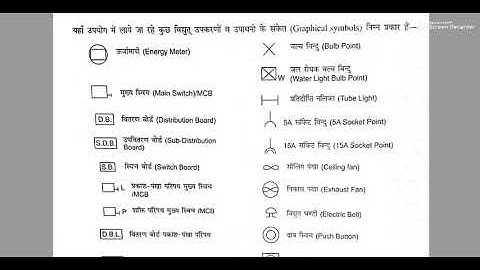 यहाँ उपयोग में लाये जा रहे कुछ विद्युत् उपकरणों व उपायनो के संकेत (Graphical symbols) निम्न प्रकार हैं—
ऊर्जामापी (Energy Meter)
मुख्य स्विच (Main Switch)/MCB
D.B. वितरण बोर्ड (Distribution Board)
S.D.B. उपवितरण बोर्ड (Sub-Distribution
Board)
S.B. स्विच बोर्ड (Switch Board)
L प्रकाश-पंखा परिपथ मुख्य स्विच
/MCB
P शक्ति परिपथ मुख्य स्विच
/MCB
D.B.L. वितरण बोर्ड प्रकाश-पंखा परिपथ
बल्ब बिन्दु (Bulb Point)
W जल रोधक बल्ब बिन्दु
(Water Light Bulb Point)
प्रतिदीप्ति नलिका (Tube Light)
5A सॉकेट बिन्दु (5A Socket Point)
15A सॉकेट बिन्दु (15A Socket Point)
सीलिंग पंखा (Ceiling fan)
निकास पंखा (Exhaust Fan)
विद्युत घण्टी (Electric Bell)
दाब स्विच (Push Button)
Screen Recorder